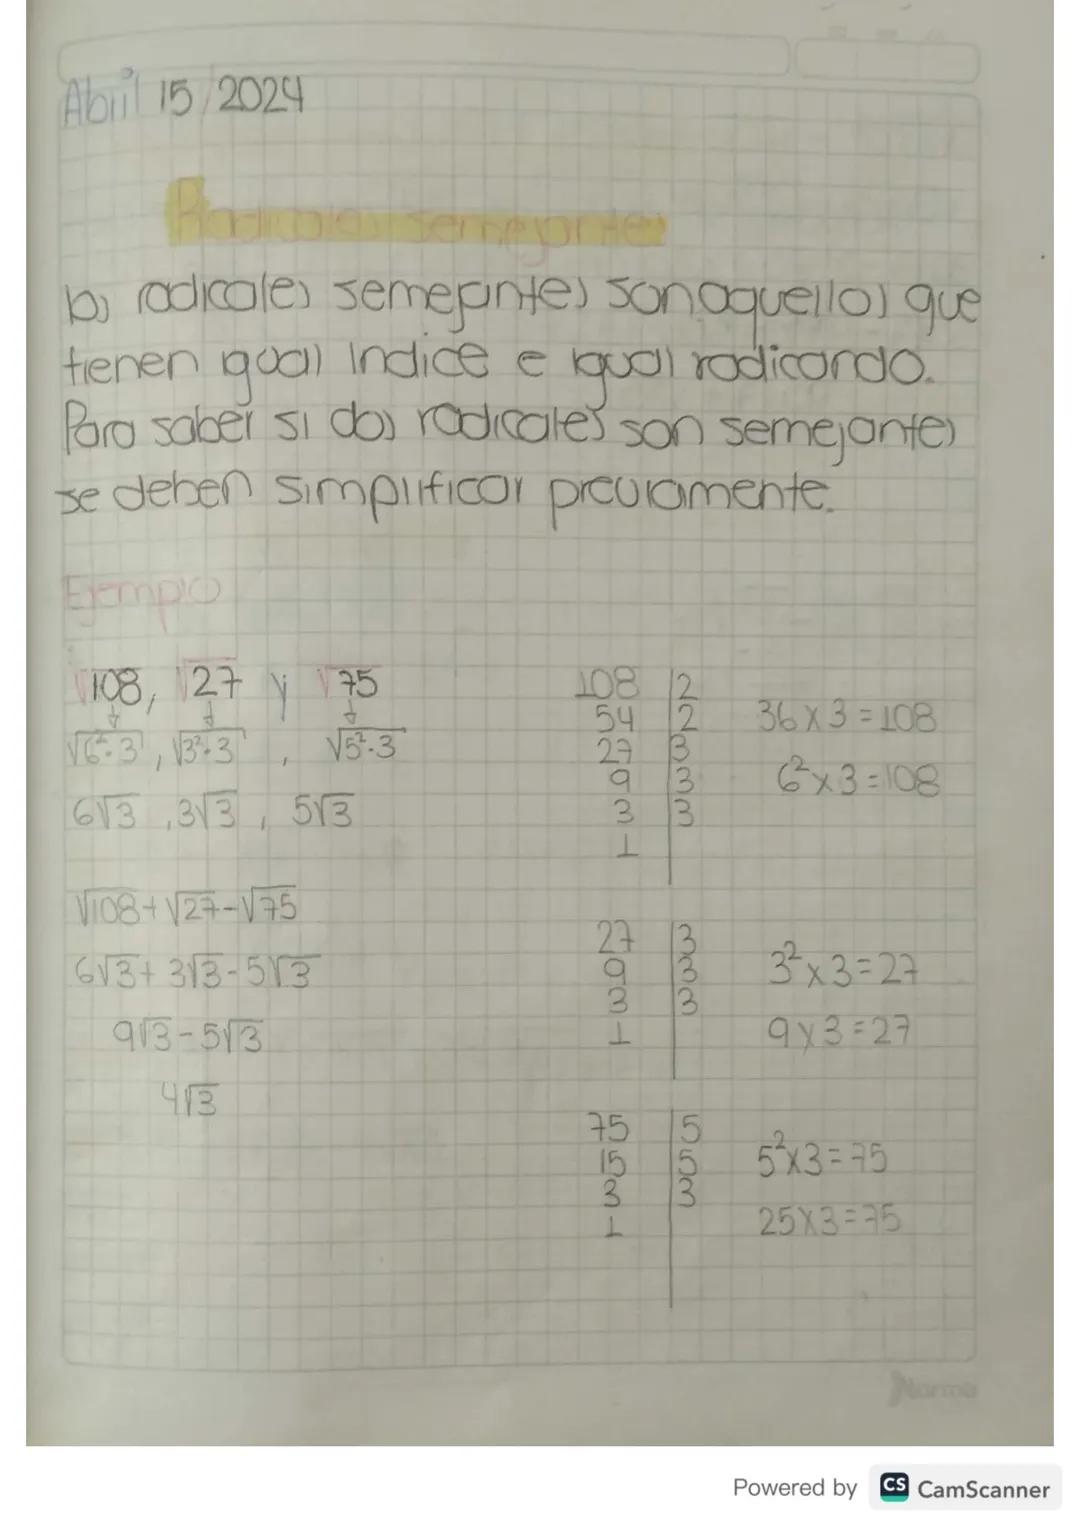 Abril 15/2024
Radicales semejantes
los radicales semejantes son aquellos que
tienen igual indice e igual radicando.
Para saber si dos radicales son semejantes
se deben simplificar previamente.
Ejemplo
√108, √27 y √75
√6²·3, √3²·3, √5²·3
6√3, 3√3, 5√3
√108+√27-√75
6√3+3√3-5√3
9√3-5√3
4√3
108 | 2
54 | 2
27 | 3
9 | 3
3 | 3
1
36x3=108
6²x3=108
27 | 3
9 | 3
3 | 3
1
3²x3=27
9x3=27
75 | 5
15 | 5
3 | 3
1
5²x3=75
25x3=75
Norma
Powered by CS CamScanner